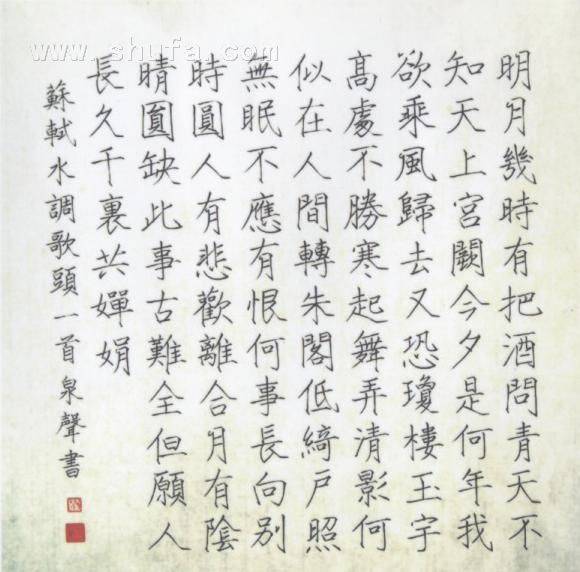 www.shufa.com
明月幾時有把酒問青天不
知天上宮闕今夕是何年我
欲乘風歸去又恐瓊樓玉宇
髙處不勝寒起舞弄清影何
似在人間轉朱閣低綺户照
無眠不應有恨何事長向别
時圓人有悲歡離合月有陰
晴圓缺此事古難全但願人
長久千裏共嬋娟
蘇軾水調歌頭一首泉聲書